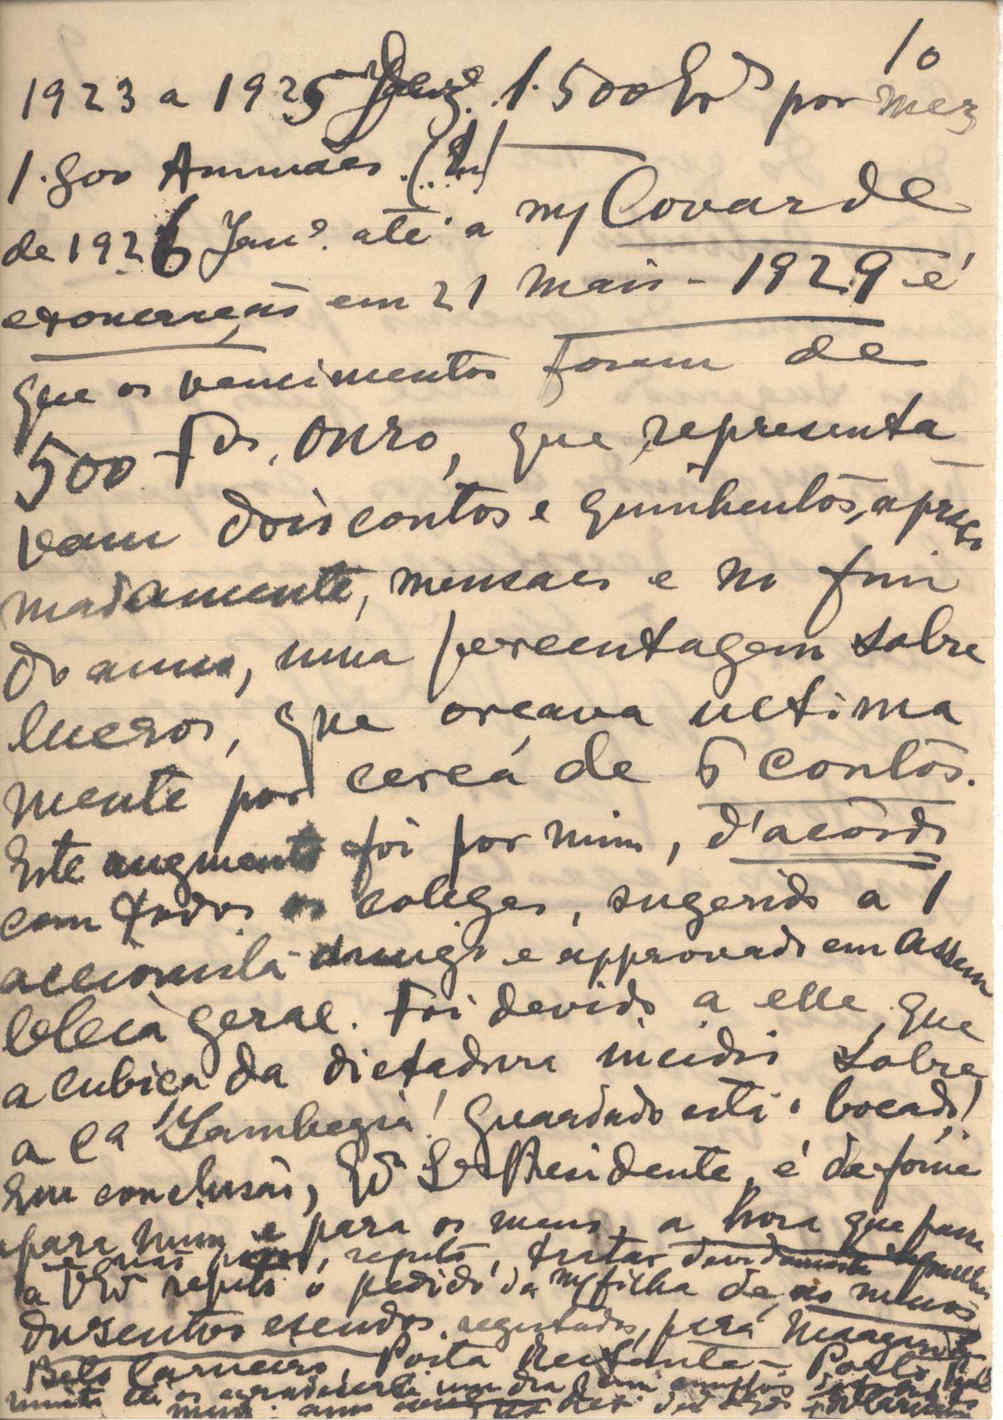 10
1923 a 1925 1.500 Esc.os por mez
1.800 Annuaes.
de 1926 Jan.º até a m/ Covarde
exoneração em 21 Maio - 1929 é
que os vencimentos foram de
500 Fcs. Ouro, que representa
vam dois contos e quinhentos, aproxi
madamente, mensaes e no fim
do anno, uma percentagem sobre
lucros, que orçava ultima
mente por cerca de 6 contos.
Este augmento foi por mim, d'acôrdo
com todos os colegas, sugerido a 1
accionista amigo e approvado em Assem
bleia geral. Foi devido a elle, que
a cubiça da dictadura incidiu sobre
a Cª Zambezia! Guardado está o bocado!
Em conclusão, Ex.º Sr. Presidente, é de fome
para mim e para os meus, a hora que passa
e não posso, repito, tratar devidamente
a V Ex.ª repito o pedido da m/ filha de, ao menos
duzentos escudos, registados, para Margarida
Belo Carneiro, Posta Restante - Porto,
muito